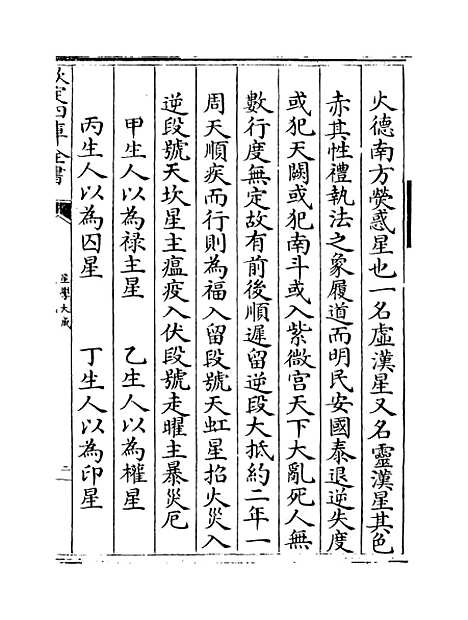 火德南方熒惑星也一名虛漢星又名靈漢星其色
赤其性禮執法之象履道而明民安國泰退逆失度
或犯天闗或犯南斗或入紫微宫天下大亂死人無
數行度無定故有前後順遲留逆段大抵約二年一
周天順疾而行則為福入留段號天虹星招火災入
逆段號天坎星主瘟疫入伏段號走曜主暴災厄
甲生人以為禄主星　乙生人以為權星
丙生人以為囚星　丁生人以為印星
欽定四庫全書
星學大成
二